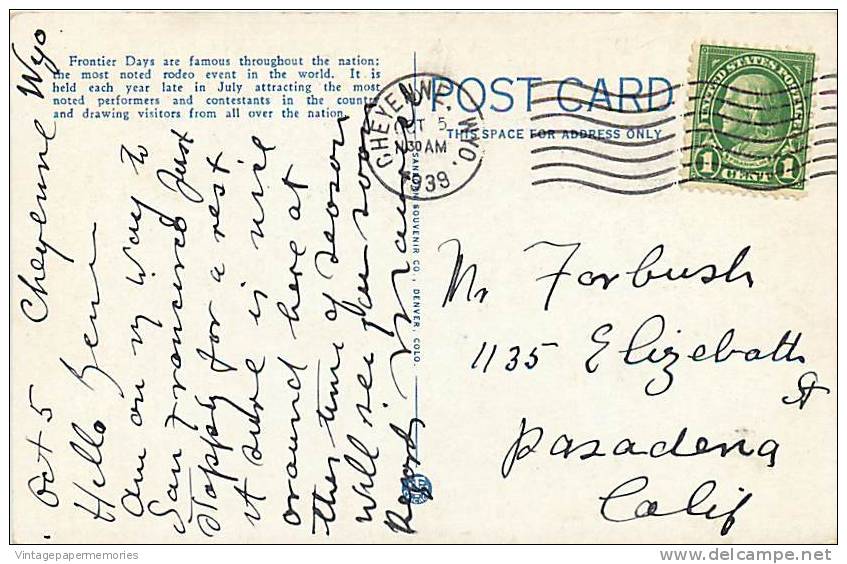 Frontier Days are famous throughout the nation;
the most noted rodeo event in the world. It is
held each year late in July attracting the most
noted performers and contestants in the country
and drawing visitors from all over the nation.
POST CARD
THIS SPACE FOR ADDRESS ONLY
CHEYENNE, WYO.
OCT 5
30 AM
1939
UNITED STATES POSTAGE
1 CENT 1
SANBORN SOUVENIR CO., DENVER, COLO.
Oct 5 Cheyenne Wyo
Hello
Am on my way to
San Francisco Just
stopped for a rest
it sure is nice
around here at
this time of season
will see you soon
Regards
Mr Forbush
1135 Elizabeth
St
Pasadena
Calif
Vintagepapermemories
www.delcampe.net